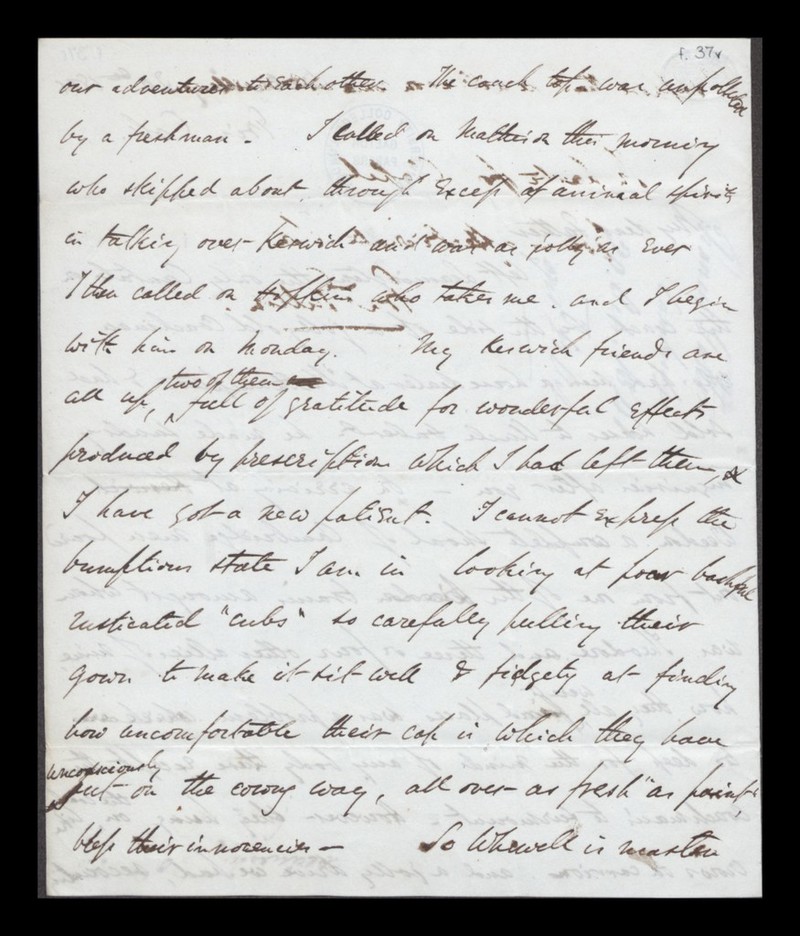 f. 37v
our adventures to each other. The coach top was unpolluted
by a freshman. I called on Mathison this morning
who skipped about through Excess of animal spirits
in talking over Keswick and was as jolly as Ever
I then called on Hopkins who takes me. and I begin
with him on Monday. My Keswick friends are
all up, two of them full of gratitude for wonderful Effects
produced by prescriptions which I had left them, &
I have got a new patient. I cannot Express the
bumptious state I am in looking at poor bashful
rusticated "cubs" so carefully pulling their
gown to make it sit well & fidgety at finding
how uncomfortable their cap is which they have
unconsciously put on the wrong way, all over as fresh "as paint"
bless their innocencies — So Whewell is master